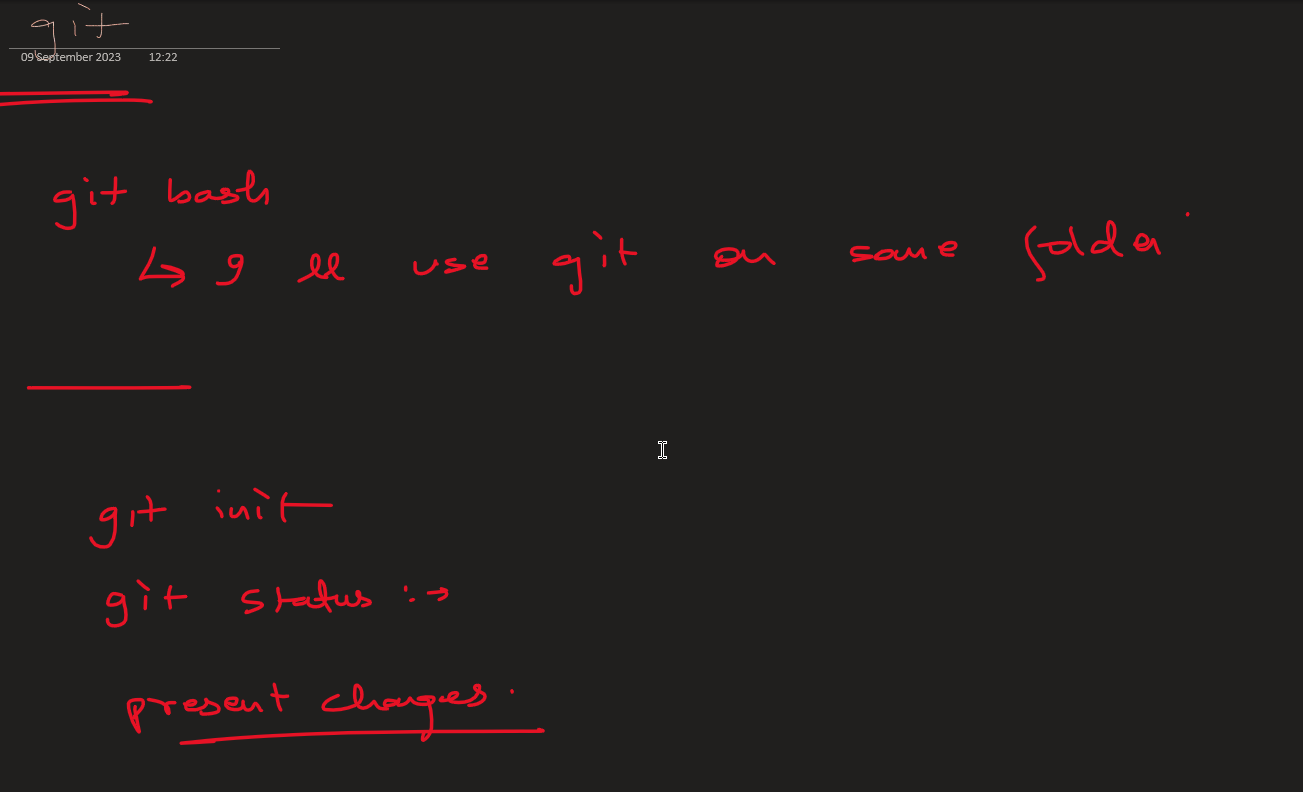 git
09 September 2023 12:22
git bash
↳ I ll use git on same folder.
git init
git status :→
present changes.